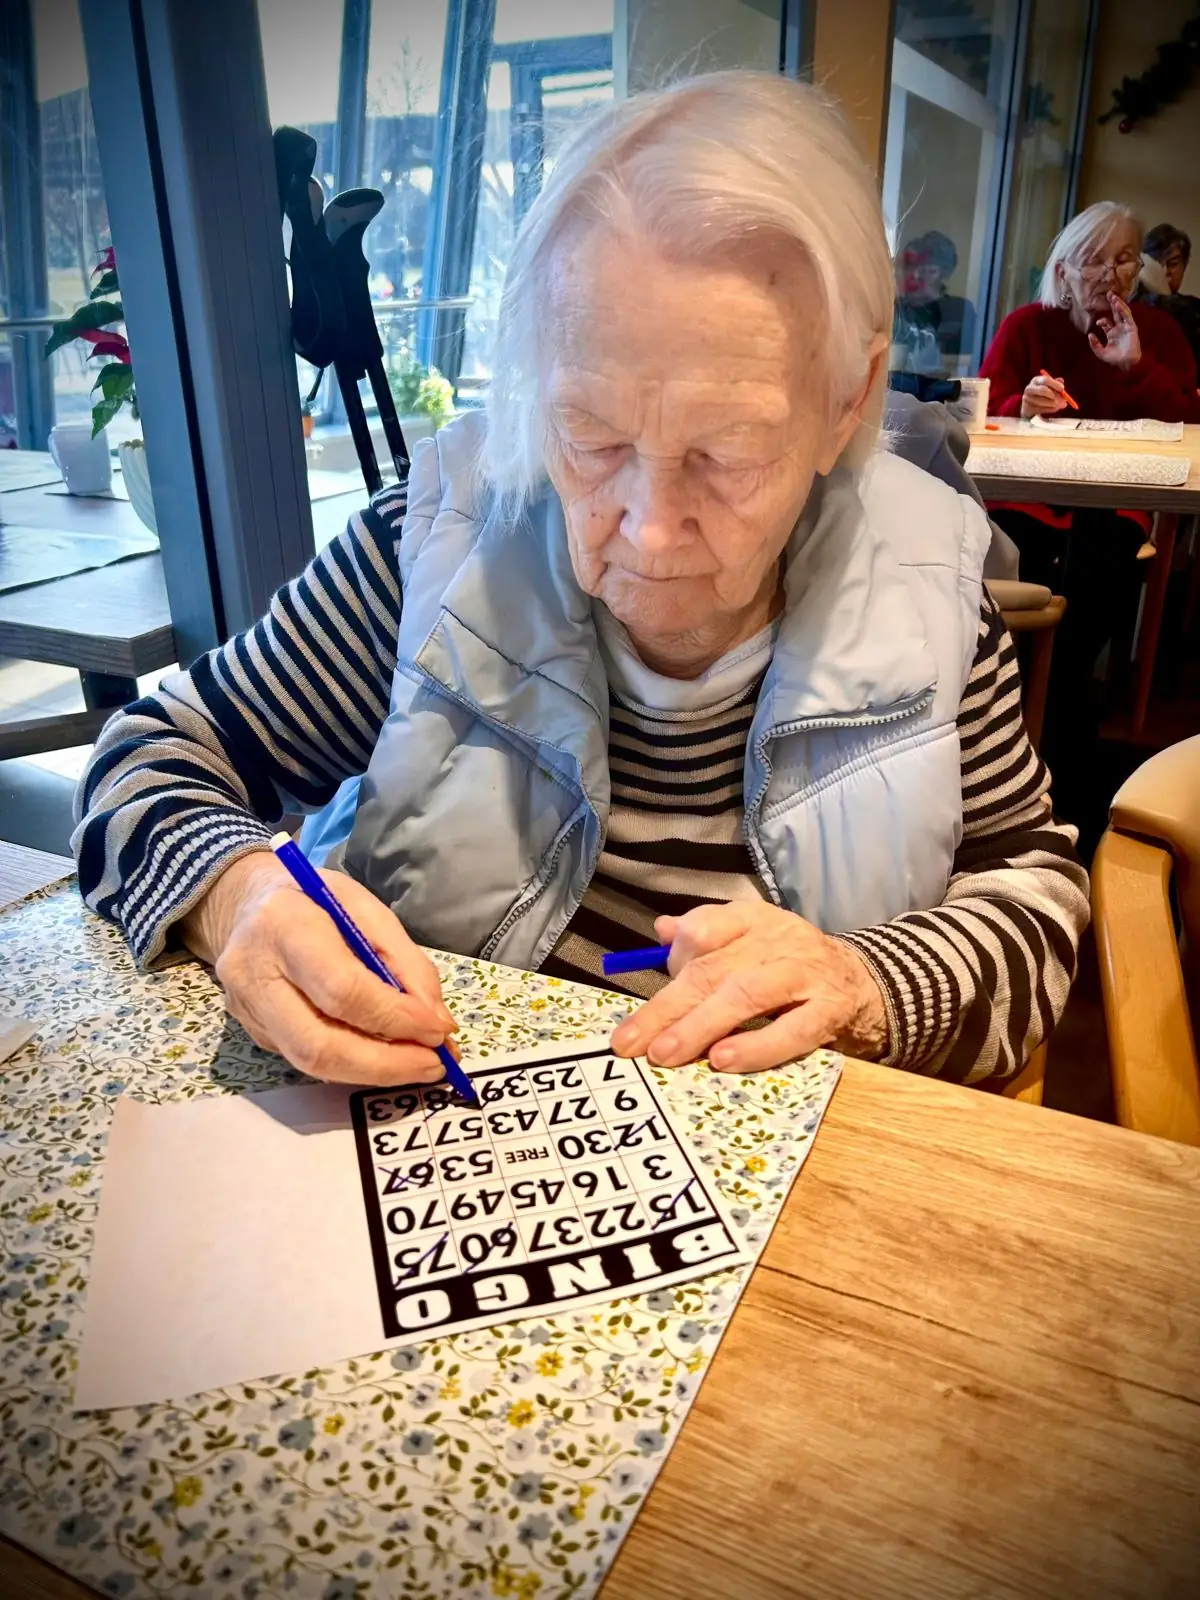 BINGO
15 22 37 60 75
3 16 45 49 70
12 30 FREE 53 67
9 27 43 57 73
7 25 39 63